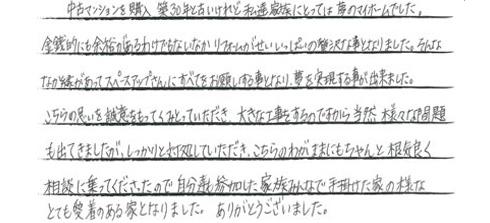 中古マンションを購入 築30年と古いけれど私達家族にとっては夢のマイホームでした。
金銭的にも余裕があるわけでもないなかリフォームがせいいっぱいの贅沢な事となりました。そんな
なか縁があってスペースアップさんにすべてをお願いする事となり、夢を実現する事が出来ました。
こちらの思いを誠意をもってくみとっていただき、大きな工事をするのですから当然 様々な問題
も出てきましたが、しっかりと対応していただき、こちらのわがままにもちゃんと根気良く
相談に乗ってくださったので自分達も参加した家族みんなで手掛けた家の様な
とても愛着のある家となりました。ありがとうございました。